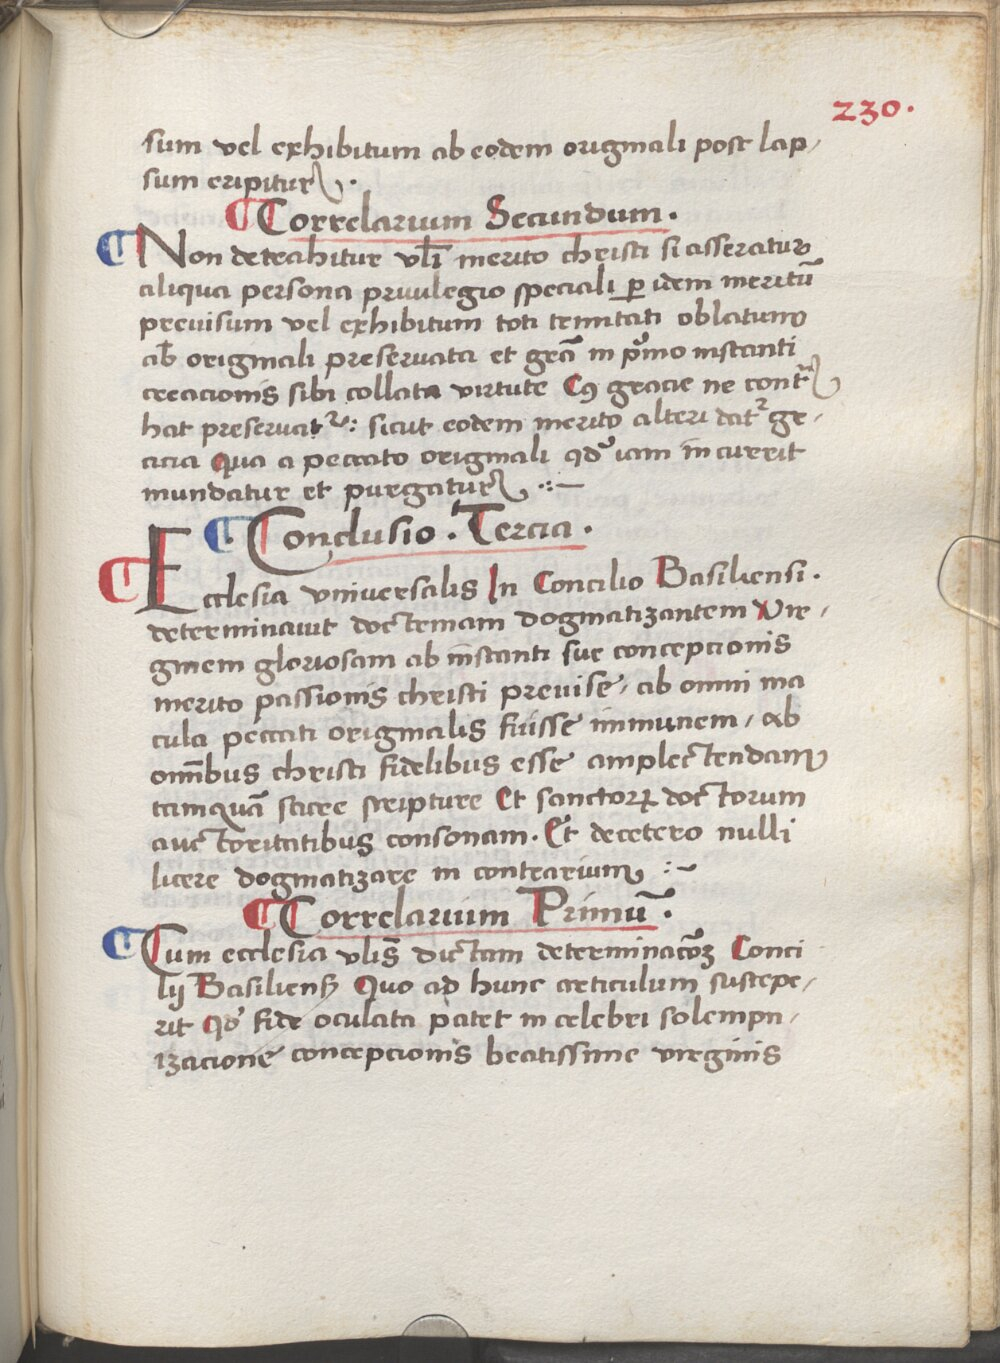 230.
sum vel exhibitum ab eodem originali post lap/
sum eripitur.
¶ Correlarium Secundum.
¶ Non detrahitur vl̄i merito christi si asseratur
aliqua persona priuilegio speciali ꝑ idem meritū
preuisum vel exhibitum toti trinitati oblatum
ab originali preseruata et grā̄ in pͥmo instanti
creacionis sibi collata virtute Cꝰ gracie ne contᷓ
hat preseruatᷣ: sicut eodem merito alteri datᷣ gr/
acia Qua a peccato originali qd̄ iam incurrit
mundatur et purgatur .:—
¶ Conclusio. Tercia.
¶ Ecclesia vniuersalis In Concilio Basiliensi.
determinauit doctrinam dogmatizantem Vir/
ginem gloriosam ab instanti sue concepcionis
merito passionis christi preuise/ ab omni ma
cula peccati originalis fuisse immunem/ Ab
om̄ibus christi fidelibus esse amplectendam
tamquā sacre scripture Et sanctoꝝ doctorum
auctoritatibus consonam. Et decetero nulli
licere dogmatizare in contrarium :~
¶ Correlarium Primū.
¶ Cum ecclesia vlis̄ dictam determinacōꝫ Conci
lij Basiliens̄ Quo ad hunc articulum suscepe/
rit Qd̄ fide oculata patet in celebri solempn/
izacione concepcionis beatissime virginis